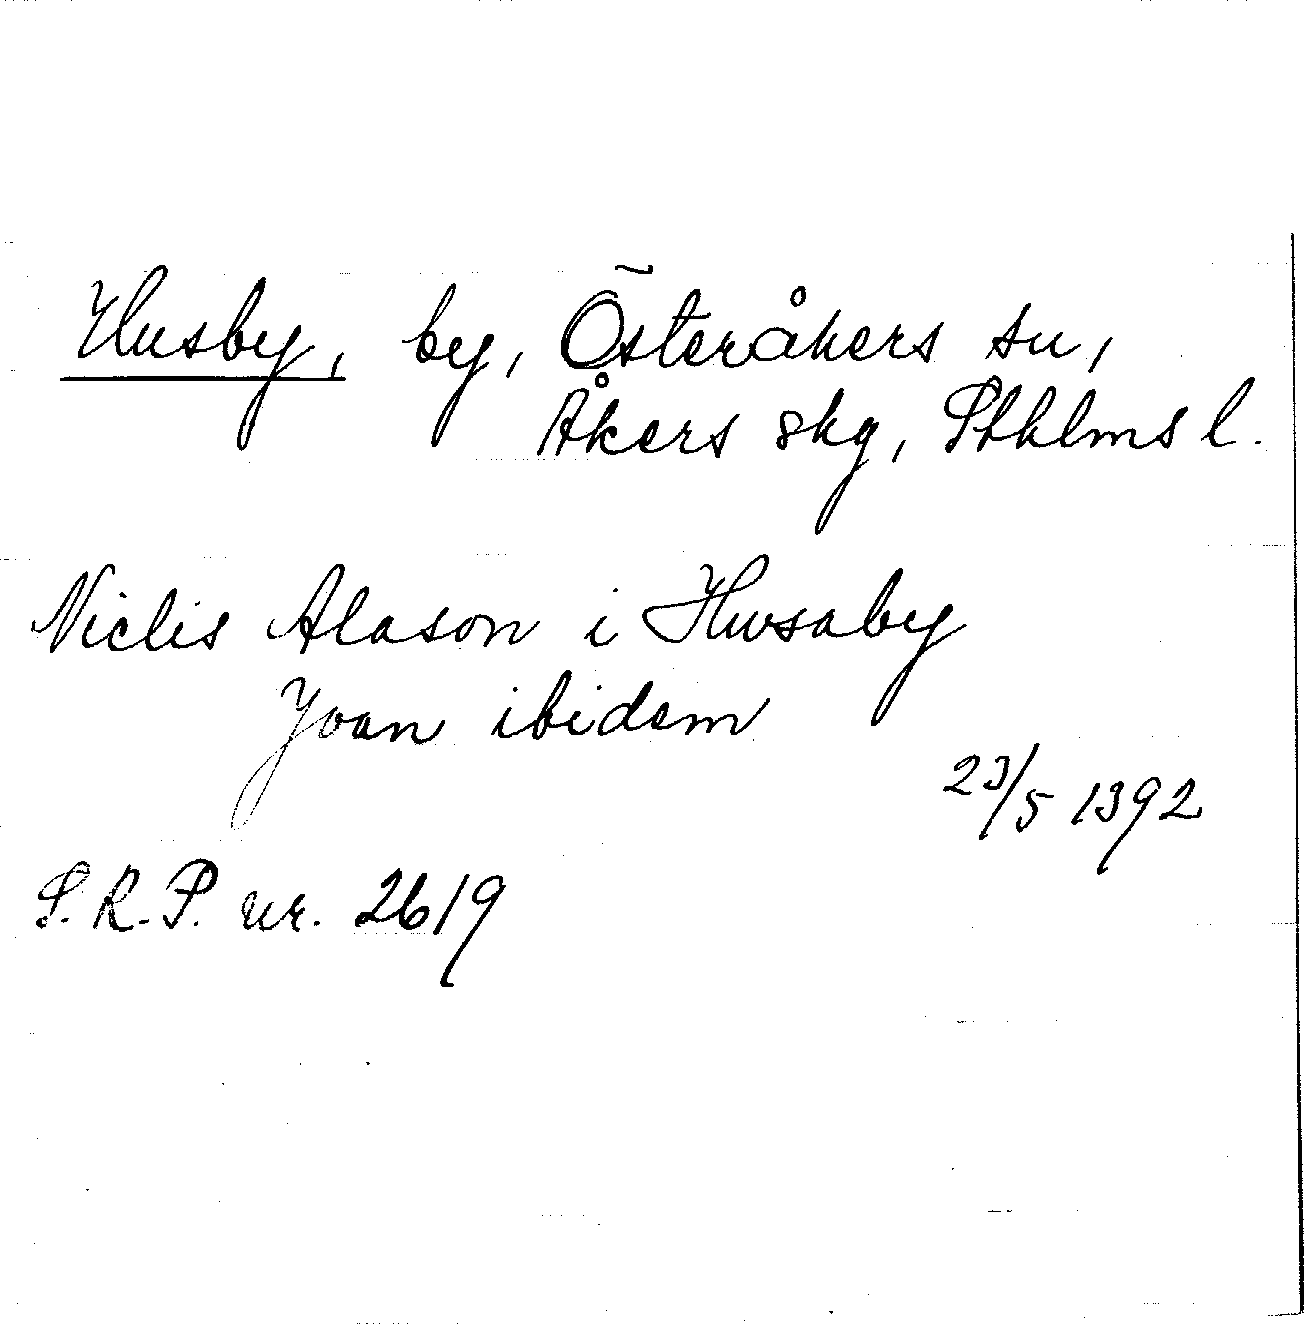 Husby, by, Österåkers sn,
Åkers skg, Sthlms l.
Niclis Alason i Husaby
Joan ibidem
23/5 1392
S.R.P. nr. 2619